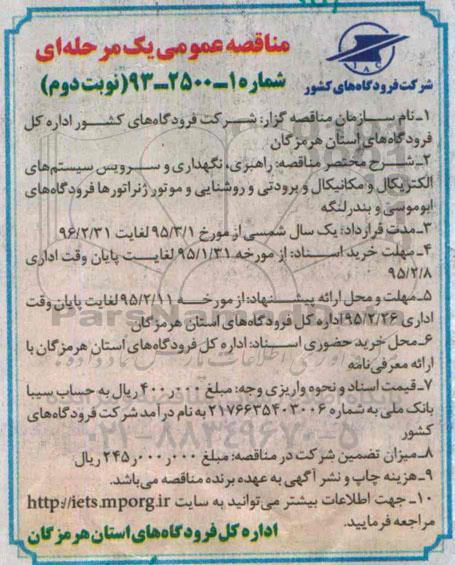 مناقصه عمومی یک مرحله‌ای
شماره ۱ــ۲۵۰۰ــ۹۳ (نوبت دوم)
شرکت فرودگاه‌های کشور
۱ـ نام سازمان مناقصه گزار: شرکت فرودگاه‌های کشور اداره کل
فرودگاه‌های استان هرمزگان
۲ـ شرح مختصر مناقصه: راهبری، نگهداری و سرویس سیستم‌های
الکتریکال و مکانیکال و برودتی و روشنایی و موتور ژنراتورها فرودگاه‌های
ابوموسی و بندرلنگه
۳ـ مدت قرارداد: یک سال شمسی از مورخ ۹۵/۳/۱ لغایت ۹۶/۲/۳۱
۴ـ مهلت خرید اسناد: از مورخه ۹۵/۱/۳۱ لغایت پایان وقت اداری
۹۵/۲/۸
۵ـ مهلت و محل ارائه پیشنهاد: از مورخه ۹۵/۲/۱۱ لغایت پایان وقت
اداری ۹۵/۲/۲۶ اداره کل فرودگاه‌های استان هرمزگان
۶ـ محل خرید حضوری اسناد: اداره کل فرودگاه‌های استان هرمزگان با
ارائه معرفی‌نامه
۷ـ قیمت اسناد و نحوه واریزی وجه: مبلغ ۴۰۰ر۰۰۰ ریال به حساب سیبا
بانک ملی به شماره ۲۱۷۶۶۳۵۴۰۳۰۰۶ به نام درآمد شرکت فرودگاه‌های
کشور
۸ـ میزان تضمین شرکت در مناقصه: مبلغ ۲۴۵ر۰۰۰ر۰۰۰ ریال
۹ـ هزینه چاپ و نشر آگهی به عهده برنده مناقصه می‌باشد.
۱۰ـ جهت اطلاعات بیشتر می‌توانید به سایت http://iets.mporg.ir
مراجعه فرمایید.
اداره کل فرودگاه‌های استان هرمزگان
ParsNamadData
۰۲۱-۸۸۳۴۹۶۷۰-۵